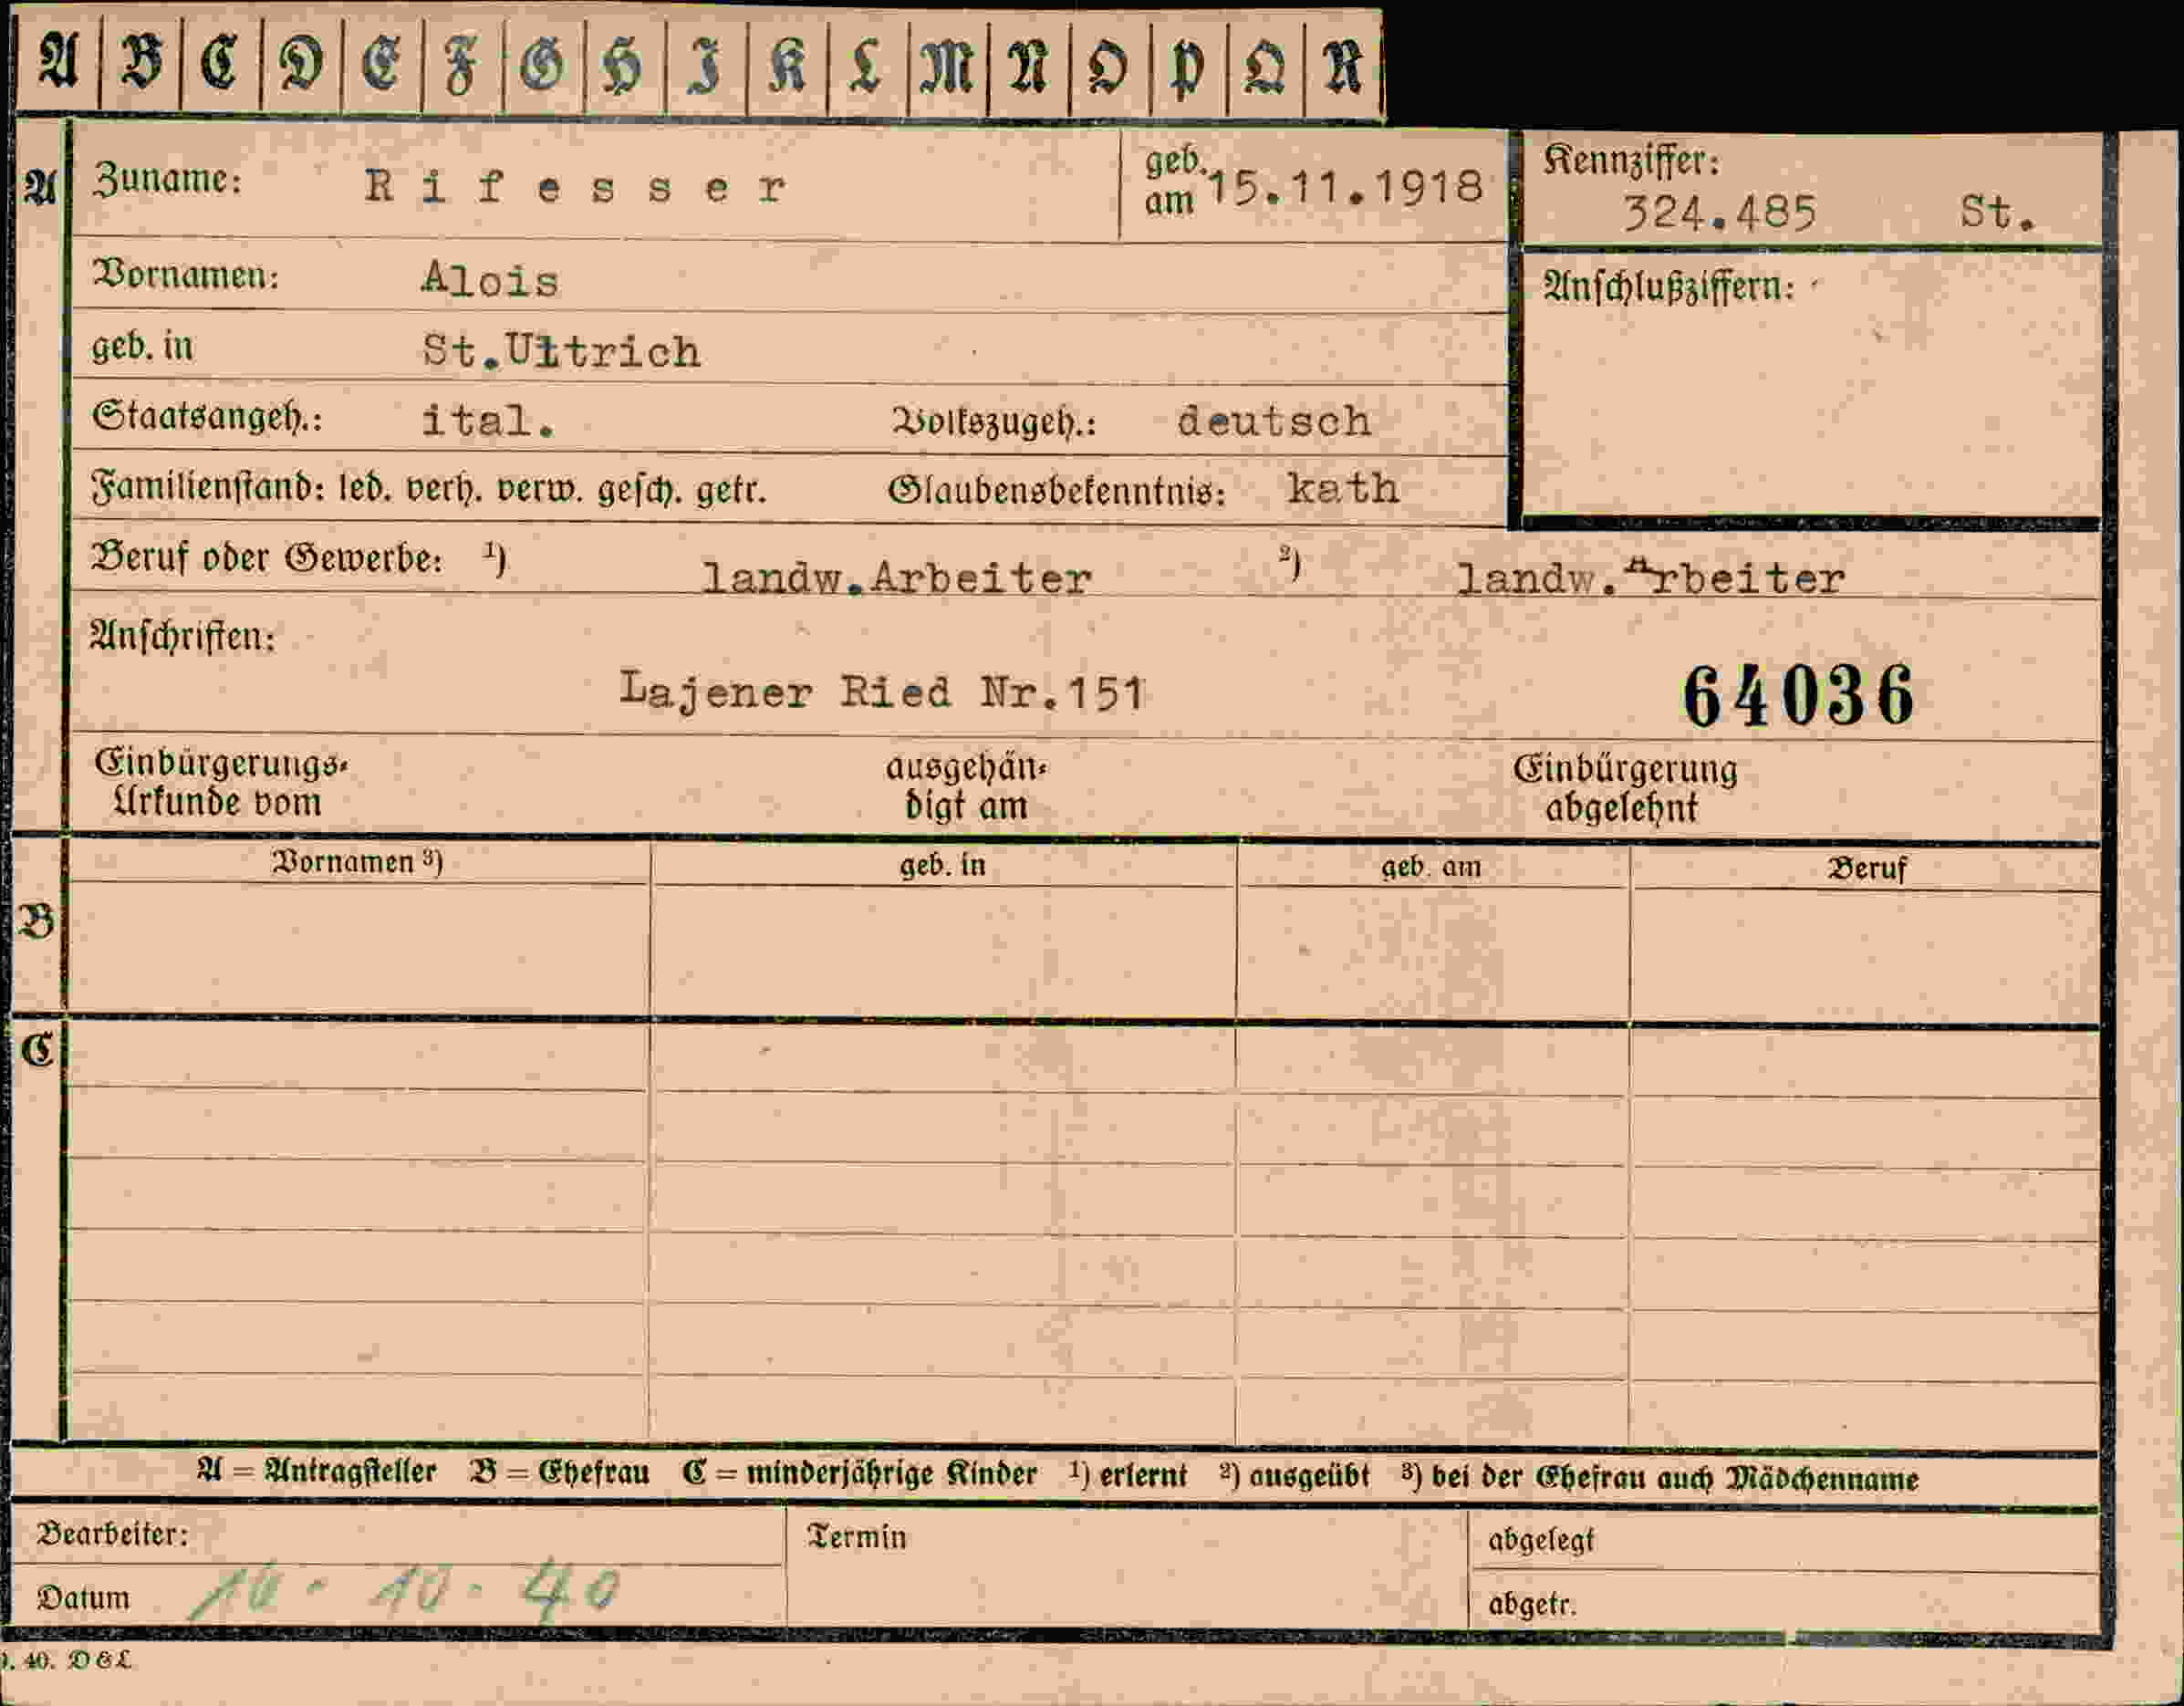 A B C D E F G H I K L M N O P Q R
A Zuname: Rifesser geb. am 15.11.1918 Kennziffer: 324.485 St.
Vornamen: Alois Anschlußziffern:
geb. in St.Ultrich
Staatsangeh.: ital. Volkszugeh.: deutsch
Familienstand: led. verh. verw. gesch. getr. Glaubensbekenntnis: kath
Beruf oder Gewerbe: ¹) landw.Arbeiter ²) landw.Arbeiter
Anschriften:
Lajener Ried Nr.151 64036
Einbürgerungs- ausgehän- Einbürgerung
Urkunde vom digt am abgelehnt
Vornamen ³) geb. in geb. am Beruf
B
C
A = Antragsteller B = Ehefrau C = minderjährige Kinder ¹) erlernt ²) ausgeübt ³) bei der Ehefrau auch Mädchenname
Bearbeiter: Termin abgelegt
Datum 10. 10. 40 abgetr.
40. D & L